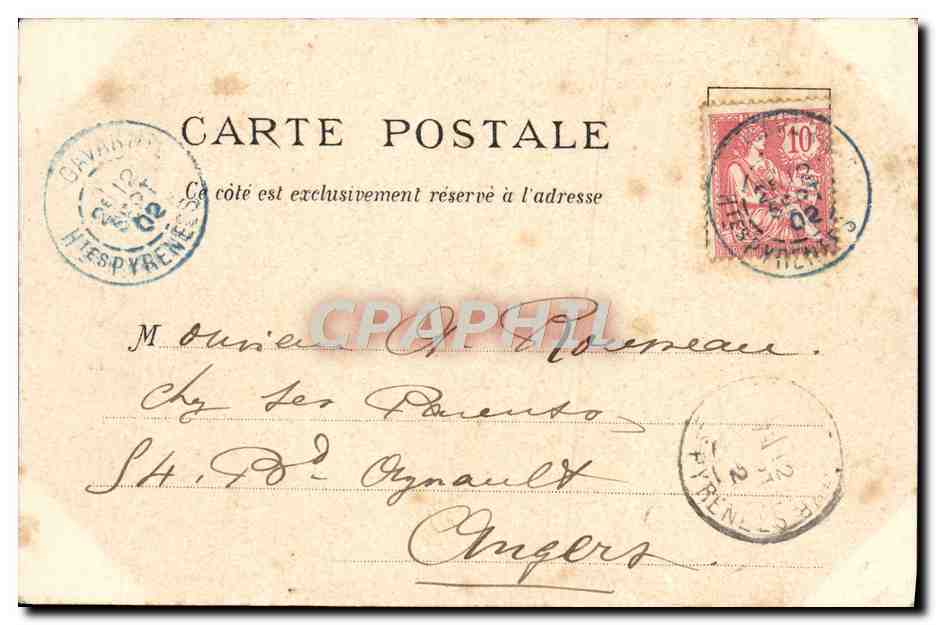 CARTE POSTALE
Ce côté est exclusivement réservé à l'adresse
GAVARNIE
12
02
HTES PYRENEES
10
12
02
HTES PYRENEES
CPAPHIL
Monsieur A Rousseau.
chez ses Parents
54. Bd Aynault
Angers
12
2
PYRENEES